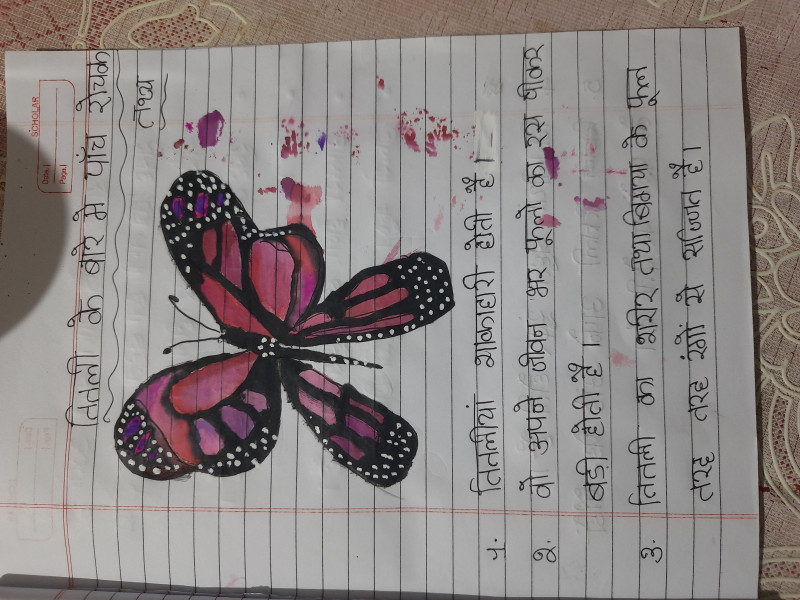 SCHOLAR
Date
Page
तितली के बारे मे पाँच रोचक
तथ्य
१. तितलीयां शाकाहारी होती है।
२. वो अपने जीवन भर फूलो का रस पीकर
बड़ी होती है।
३. तितली का शरीर तथा के फूल
तरह तरह रंगों से सज्जित है।